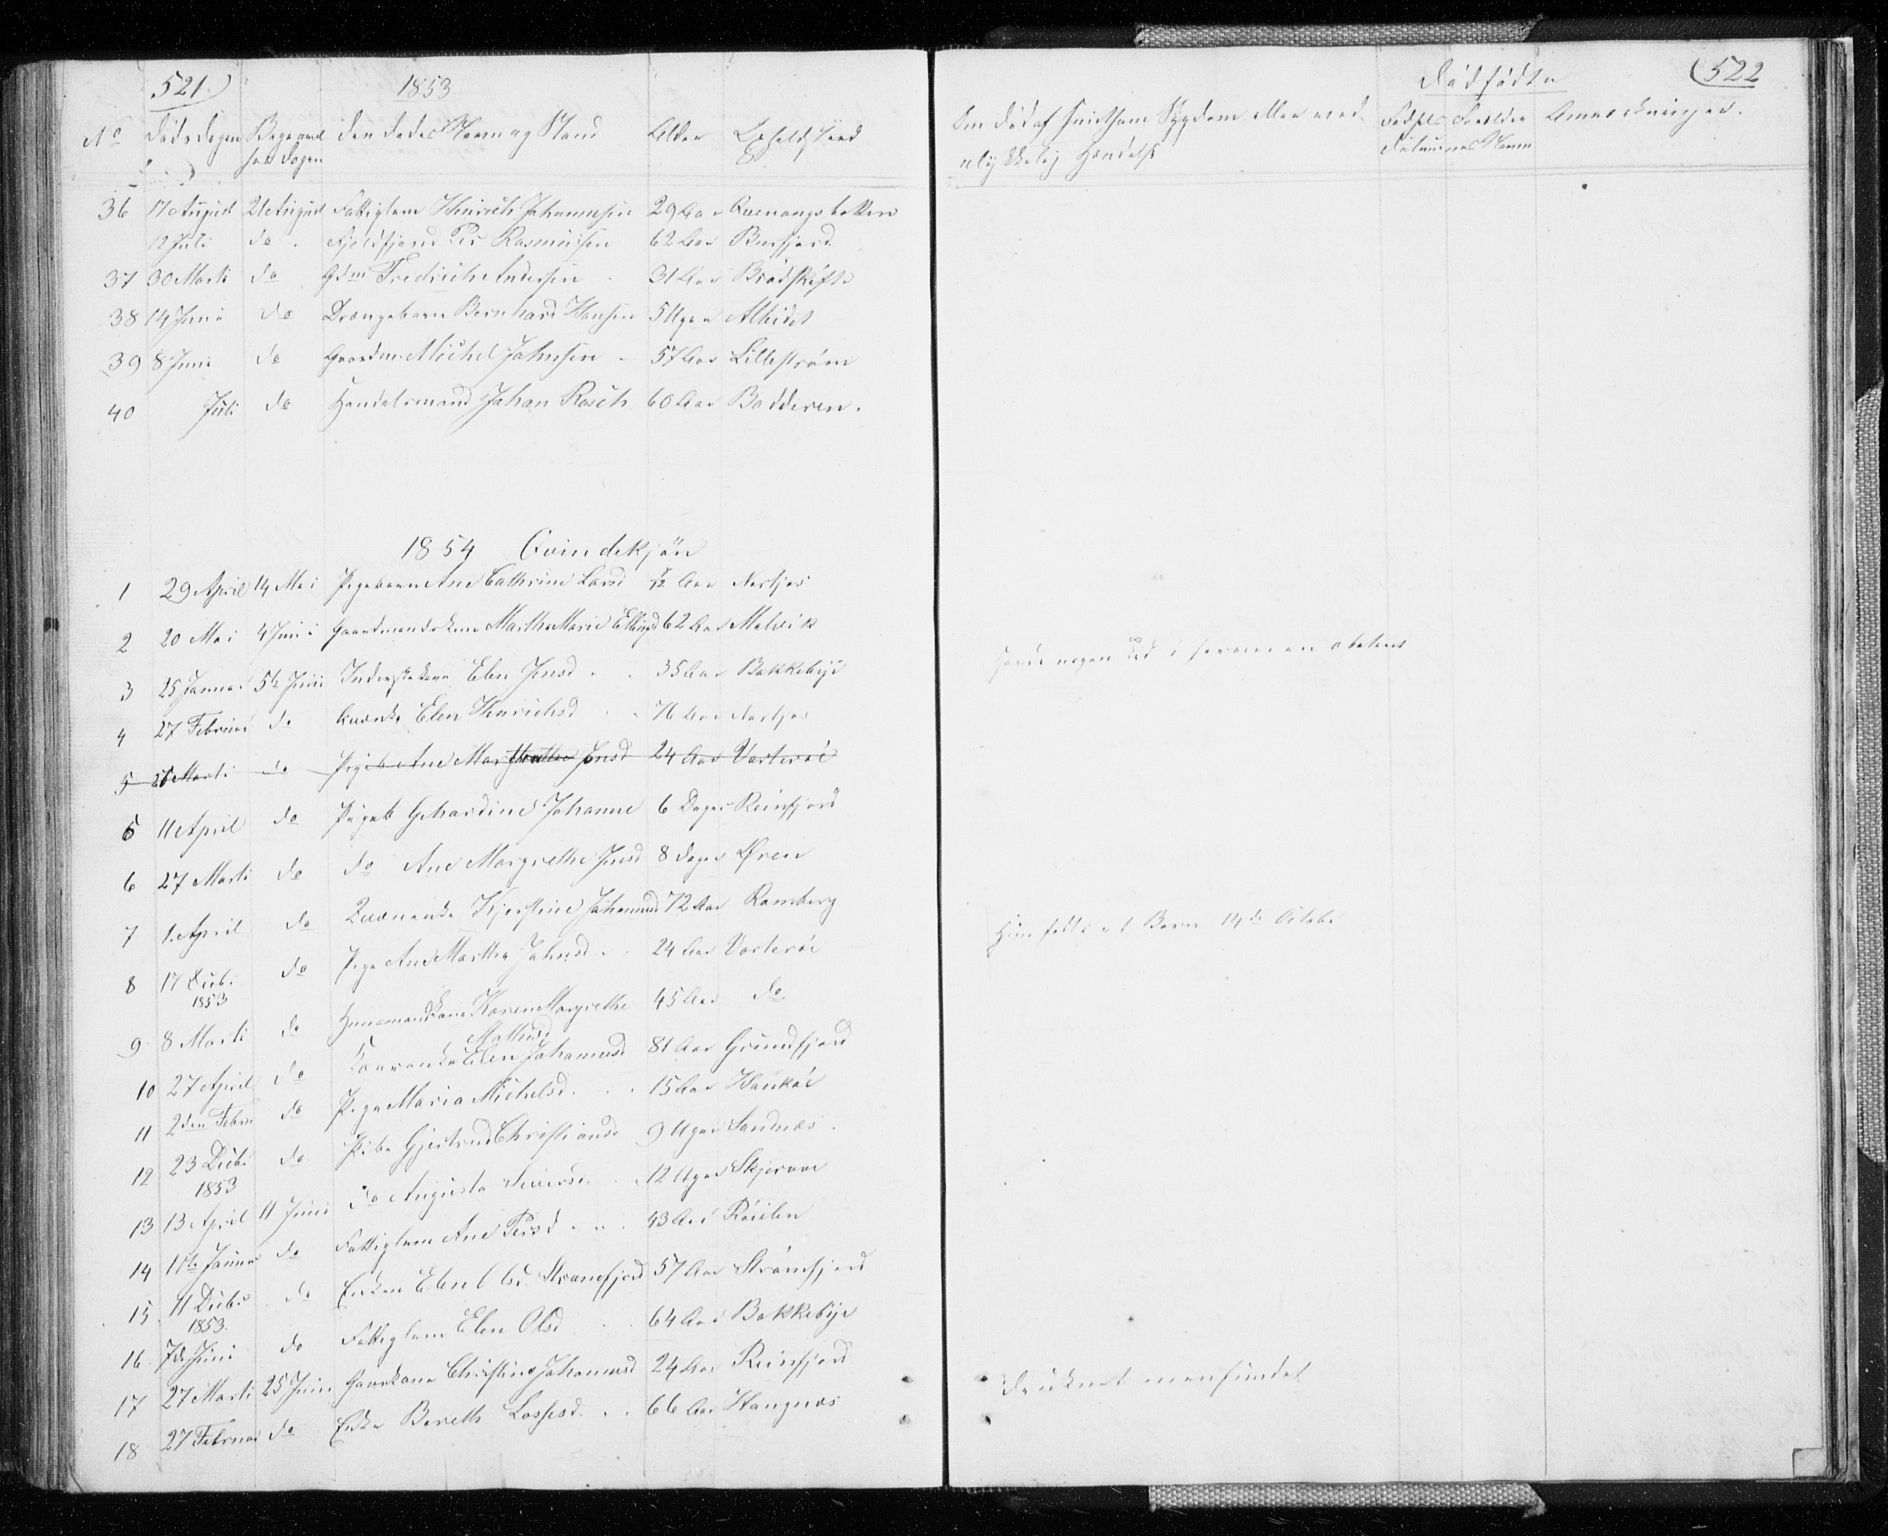 521
1853
No Dødsdagen Begravelsesdagen Den Dødes Navn og Stand Alder Opholdssted
36 17 August 21 August Fattiglem Hinrich Johannesen 29 Aar Qvenangsbotten
12 Juli do Per Rasmusen 62 Aar Burfjord
37 30 Marti do Gdm Fredrich Andersen 31 Aar Brødskifte
38 14 Juni do Drengebarn Bernhard Hansen 5 Uger Alteidet
39 8 Juni do Gaardm. Michel Johnsen 57 Aar Lillestrøm
40 Juli do Handelsmand Johan Rasch 60 Aar Badderen.
1854 Qvindekjøn
1 29 April 14 Mai Pigebarn Ane Cathrine Larsd Aar
2 20 Mai 4 Juni Gaardmandskone Martha Marie 62 Aar Malvik
3 25 Januar 5te Juni Inderstekone Elen Jensd 35 Aar Bakkebye
4 27 Februar do Elen Henrichsd 76 Aar
5 Marti do Pigeb Ane Martha Jensd 24 Aar Vorterøe
5 11 April do Pigeb Gehardine Johanne 6 Dage Reinfjord
6 27 Marti do do Ane Margrethe Jensd 8 Dage Øren
7 1 April do Qvænenke Kjerstine Johannesd 72 Aar Ramberg
8 17 Decbr 1853 do Pige Ane Martha Johnsd 24 Aar Vorterøe
9 8 Marti do Huusmandskone Karen Margrethe Mathisd 45 Aar do
10 27 April do Elen Johannesd 81 Aar Grundfjord
11 2den Febru do Pige Maria Michelsd 15 Aar Haukøe
12 23 Decbr 1853 do Pibe Gjertrud Christiansd 9 Uger Sandnæs
13 13 April 11 Juni do Augusta Siversd 12 Uger Skjervøe
14 11te Januar do Fattiglem Ane Persd 43 Aar
15 11 Decbr 1853 do Enken Elen Strømfjord 57 Aar Strømfjord
16 7de Juni do Fattiglem Elen Olsd 64 Aar Bakkebye
17 27 Marti 25 Juni Gaardkone Christine Johannesd 24 Aar Reinfjord
18 27 Februar do Enke Bereth Lassesd 66 Aar Hangnæs
522
Dødfødte
Om Død af smitsom Sygdom eller ved
ulykkelig Hændelse
Fødsels Datum Forældrenes Navn Anmerkninger.
død i
Hun fødte et Barn 14de Octobr
druknet men fundet